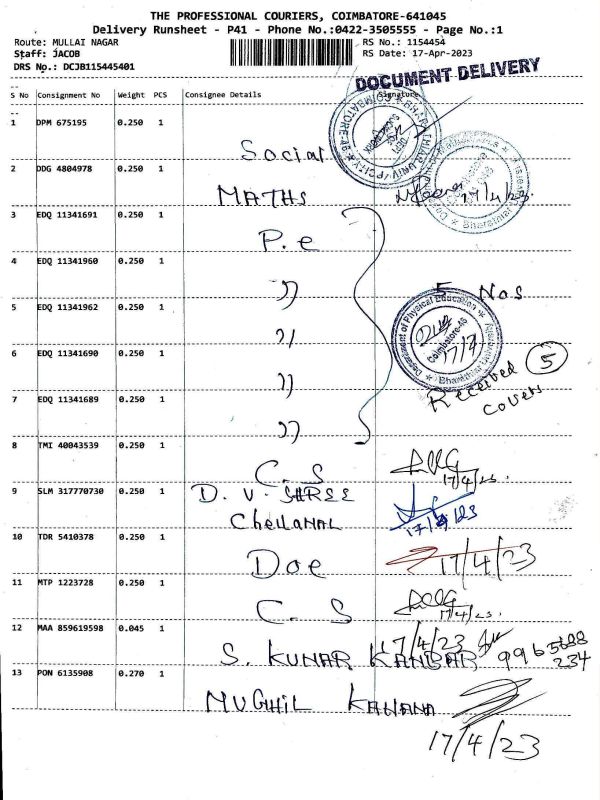 THE PROFESSIONAL COURIERS, COIMBATORE-641045
Delivery Runsheet - P41 - Phone No.:0422-3505555 - Page No.:1
Route: MULLAI NAGAR RS No.: 1154454
Staff: JACOB RS Date: 17-Apr-2023
DRS No.: DCJB115445401
DOCUMENT DELIVERY
S No Consignment No Weight PCS Consignee Details Signature
1 DPM 675195 0.250 1 Social
2 DDG 4804978 0.250 1 MATHS 17/4/23.
3 EDQ 11341691 0.250 1 P.e
4 EDQ 11341960 0.250 1 〃 5 Nos
5 EDQ 11341962 0.250 1 〃
Department of Physical Education
Coimbatore-46
17/4
6 EDQ 11341690 0.250 1 〃
Received 5
covers
7 EDQ 11341689 0.250 1 〃
8 TMI 40043539 0.250 1 C.S 17/4/23.
9 SLM 317770730 0.250 1 D. V. SHREE
Chellamal 17/4/23
10 TDR 5410378 0.250 1 Doe 17/4/23
11 MTP 1223728 0.250 1 C.S 17/4/23.
12 MAA 859619598 0.045 1 S. KUMAR 17/4/23
13 PON 6135908 0.270 1 MUGHIL KANANA
17/4/23